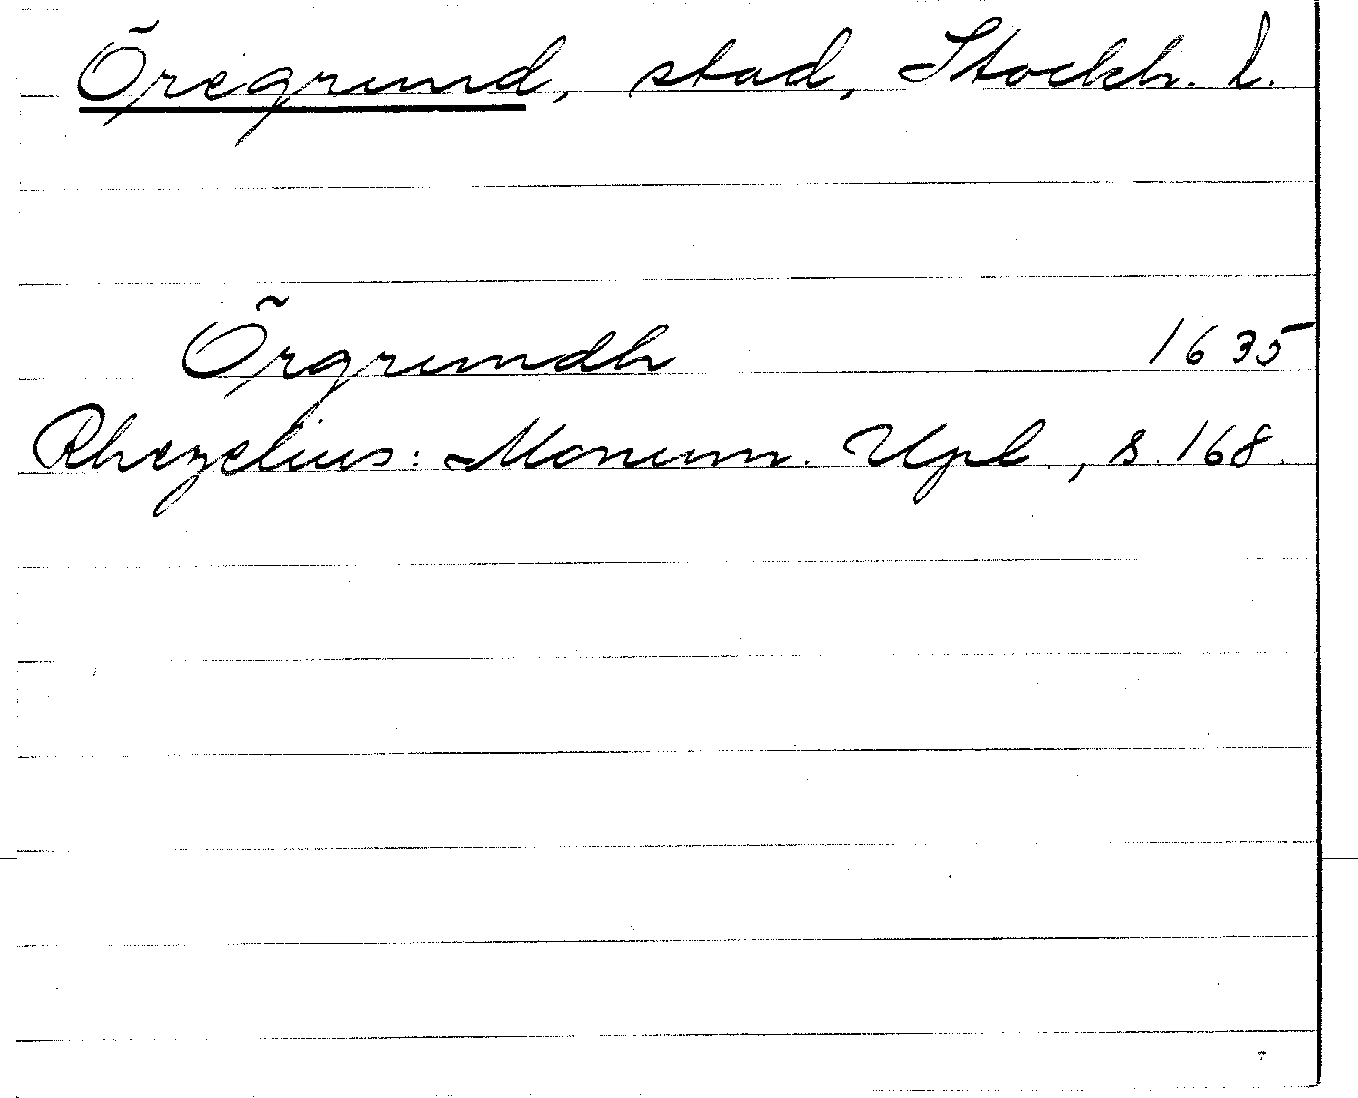 Öregrund, stad, Stockh. l.
Örgrundh 1635
Rhezelius: Monum. Upl., s. 168.